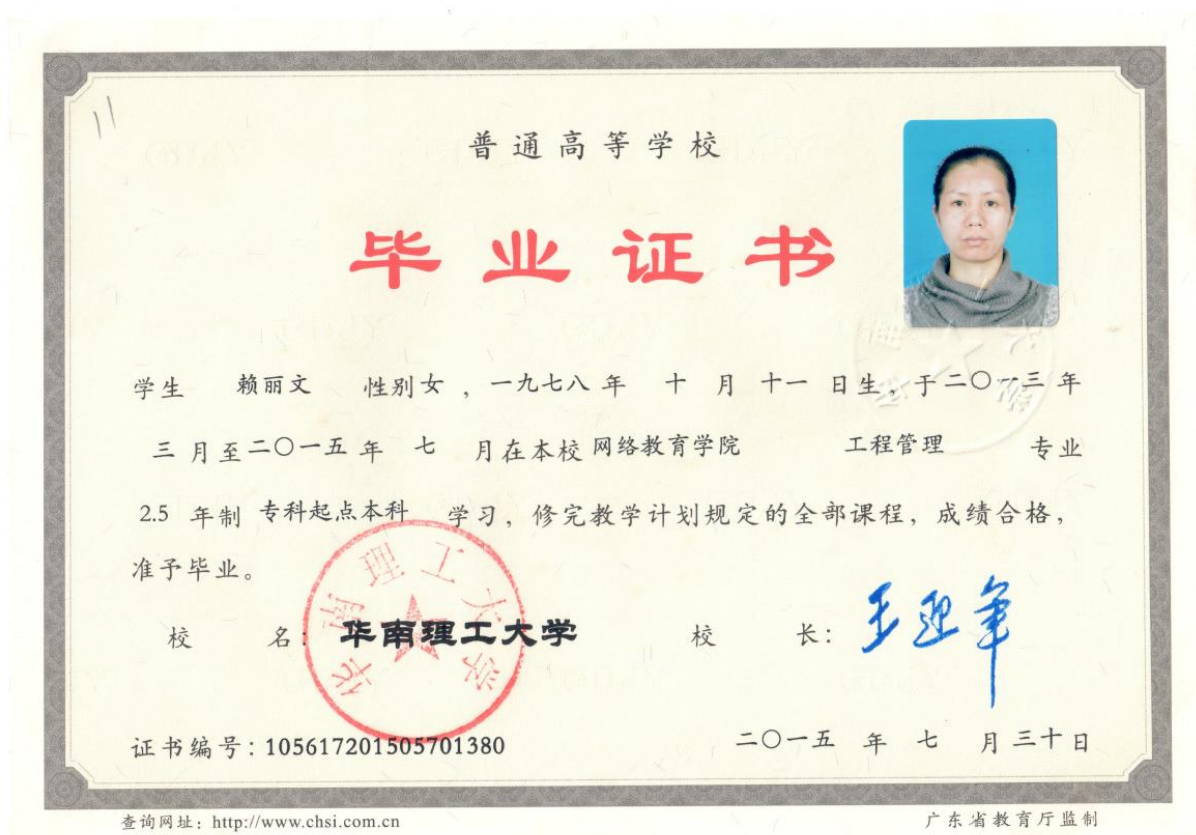 11
普通高等学校
毕业证书
学生 赖丽文 性别女，一九七八年 十月十一日生，于二〇一三年
三月至二〇一五年 七 月在本校 网络教育学院 工程管理 专业
2.5 年制 专科起点本科 学习，修完教学计划规定的全部课程，成绩合格，
准予毕业。
校 名：华南理工大学 校 长：王迎军
华南理工大学
证书编号：105617201505701380 二〇一五 年 七 月三十日
查询网址：http://www.chsi.com.cn 广东省教育厅监制